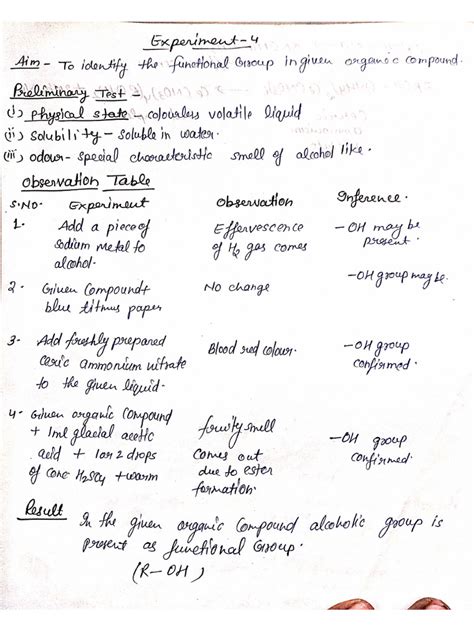 Experiment-4
Aim - To identify the functional Group in given organic compound.
Preliminary Test -
(i) physical state - colourless volatile liquid
(ii) solubility - soluble in water.
(iii) odour - special characteristic smell of alcohol like.
Observation Table
S.No. Experiment Observation Inference.
1. Add a piece of Effervescence -OH may be
sodium metal to of H2 gas comes present.
alcohol.
2. Given Compound+ No change -OH group may be.
blue litmus paper
3. Add freshly prepared Blood red colour. -OH group
ceric ammonium nitrate confirmed.
to the given liquid.
4. Given organic Compound fruity smell -OH group
+ 1ml glacial acetic comes out confirmed.
acid + 1 or 2 drops due to ester
of conc H2SO4 + warm formation.
Result In the given organic compound alcoholic group is
present as functional Group.
(R-OH)